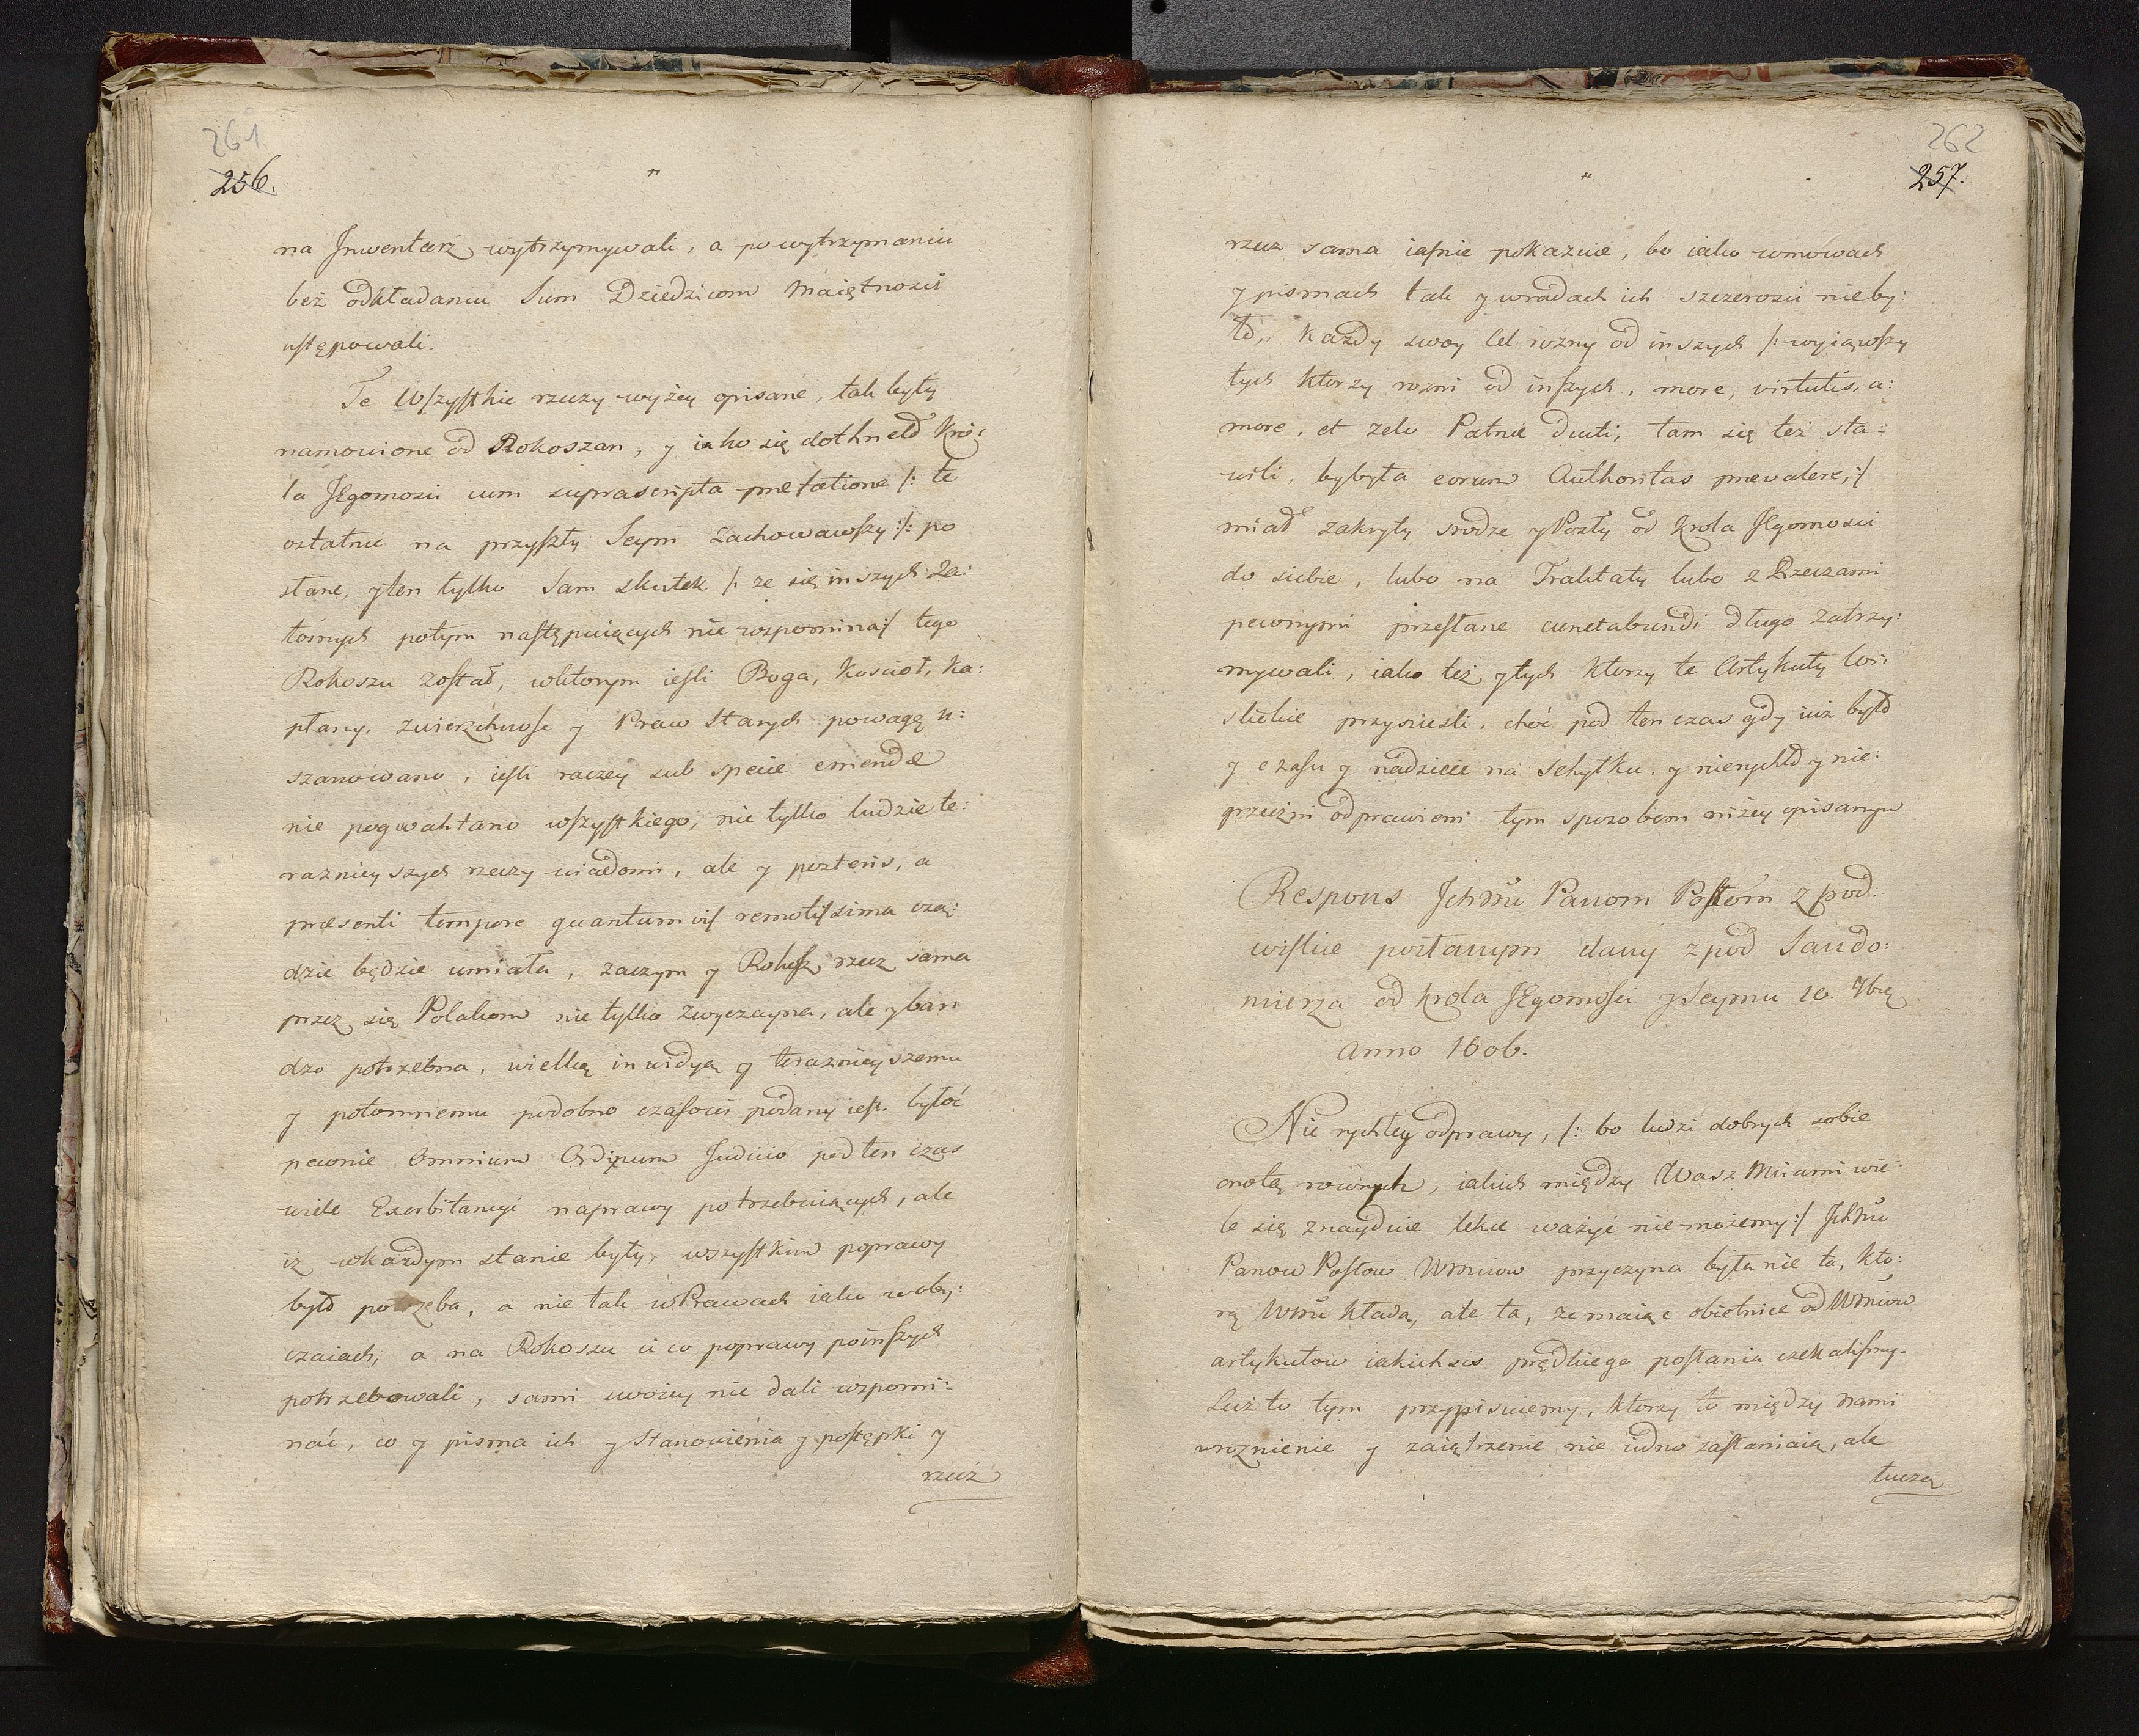 261
256.
"
na Jnwentarz wytrzymywali, a po wytrzymaniu
bez odkładaniu Sum Dziedzicom Maiętnosći
ustępowali.
Te Wszystkie rzeczy wyżey opisane, tak były
namowione od Rokoszan, y iako się dothneło Kró:
la JEgomosci cum suprascripta præfatione /: te
ostatnie na przyszły Seym zachowawszy :/: po
słane, y ten tylko sam skutek /: ze się inszych za:
tornych potym następuiących nie wspomina :/ tego
Rokoszu został, wktorym iesli Boga, Kosciół, Ka:
płany, zwierzchnose y Praw Starych powagę u:
szanowano, iesli raczey sub specie emendæ
nie pogwałtano wszystkiego, nie tylko ludzie te:
raznieyszych rzeczy wiadomi, ale y posteris, a
præsenti tempore quantumvis remotissima osą:
dzie będzie umiała, zaczym y Rokosz rzecz sama
przez się Polakom nie tylko zwyczayna, ale y bar
dzo potrzebna, wielką inwidyą y teraznieyszemu
y potomnemu podobno czasowi podany iest. byłoć
pewnie Omnium Ordinum Judicio pod ten czas
wiele Exorbitancyi naprawy potrzebuiących, ale
iż wkażdym stanie były, wszystkim poprawy
było potrzeba, a nie tak w Prawach iako w oby:
czaiach, a na Rokoszu ci co poprawy poinszych
potrzebowali, sami swoiey nie dali wspomi:
nać, co y pisma ich y Stanowienia y postępki y
rzecz
262
257.
"
rzecz sama iasnie pokazuie, bo iako wmowach
y pismach tak y wradach ich szczerosci nieby:
ło,, Każdy swoy Cel rożny od inszych /: wyiąwszy
tych ktorzy rozni od inszych, more, virtutis, a:
more, et zelo Patriæ ducti, tam się też sta:
wili, byłyła eorum Authoritas prævalere, :/
miał zakryty srodze y Posły od Krola JEgomosci
do siebie, lubo na Traktaty lubo z Rzeczami
pewnymi przesłane cunctabundi długo zatrzy:
mywali, iako też y tych ktorzy te Artykuły Wi:
slickie przyniesli, choć pod ten czas gdy iuż było
y czasu y nadzieie na schyłku. y nierychło y nie:
przeżni odprawieni tym sposobem niżey opisanym
Respons Jchmū Panom Posłom z pod:
wislice posłanym dany z pod Sando:
mierza od Krola JEgomości y Seymu 10. 7brę
Anno 1606.
Nie rychłey odprawy, /: bo ludzi dobrych sobie
cnotą rownych, iakich między Wasz Mciami wie:
le się znayduie lekce ważyć nie możemy :/ Jchmū
Panow Posłow Wmciow przyczyna była nie ta, kto:
rą Wmć kłada, ale ta, ze maiąc obietnice od Wmciow
artykułow iakichsis prędkiego posłania czekalismy.
Lecz to tym przypisuiemy, ktorzy to między nami
wroznienie y zaiątrzenie nie iedno zasłaniaią, ale
tuczą